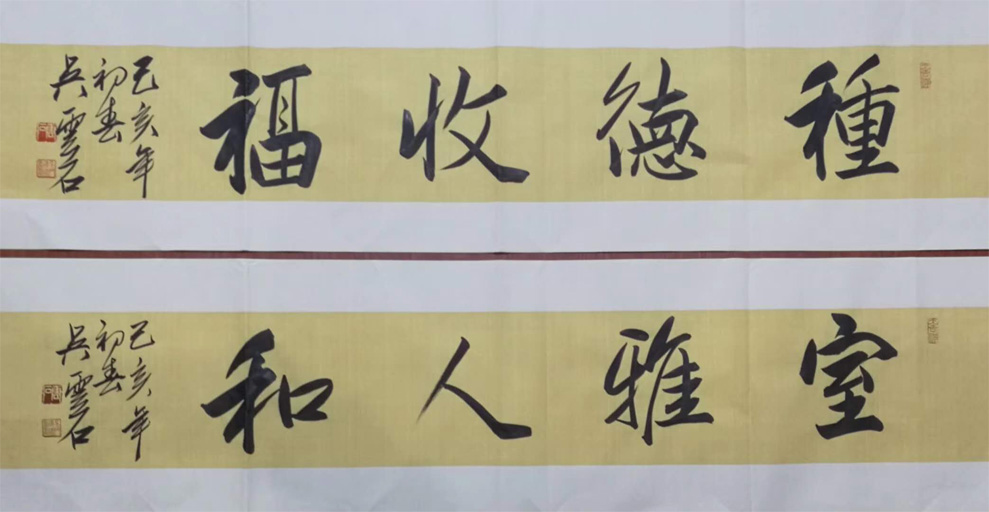 種德收福
己亥年
初春
吴雲石
室雅人和
己亥年
初春
吴雲石